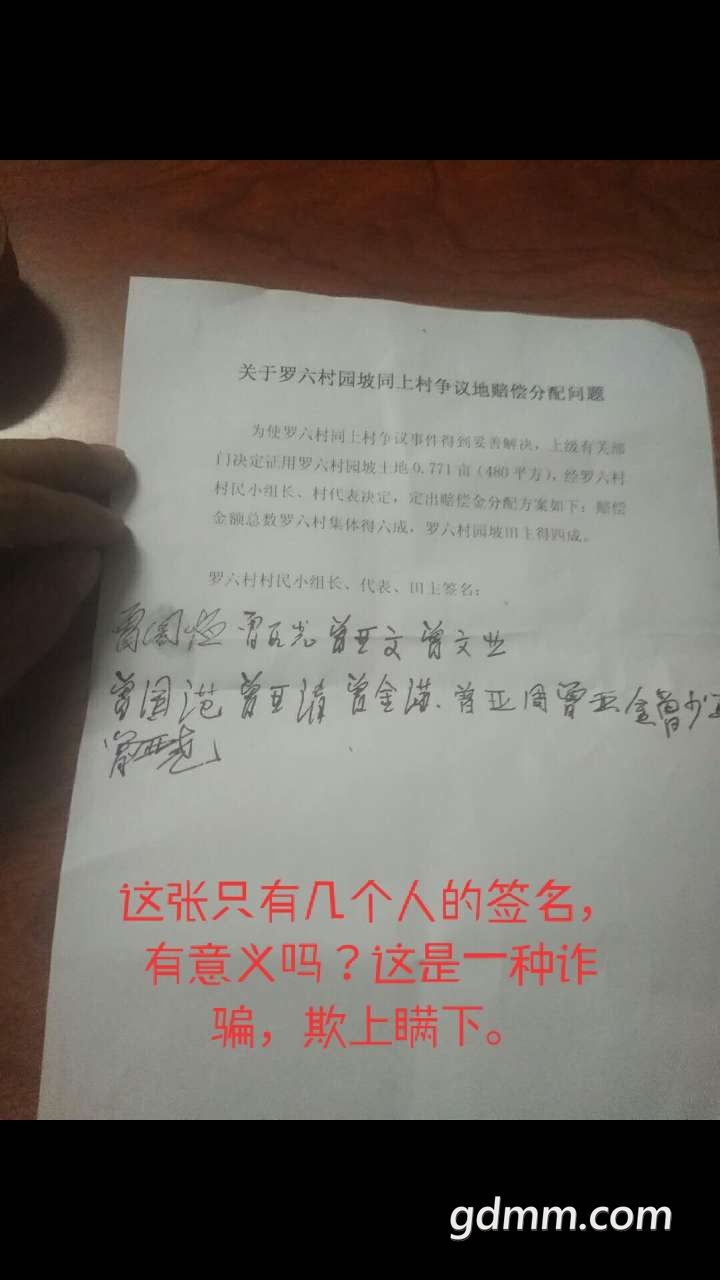 关于罗六村园坡同上村争议地赔偿分配问题
为使罗六村同上村争议事件得到妥善解决，上级有关部
门决定证用罗六村园坡土地0.771亩（480平方），经罗六村
村民小组长、村代表决定，定出赔偿金分配方案如下：赔偿
金额总数罗六村集体得六成，罗六村园坡田上得四成。
罗六村村民小组长、代表、田上签名：
曾国恒 曾 光 曾亚文 曾文业
曾国范 曾亚清 曾金 曾亚周 曾亚金 曾少
曾亚
这张只有几个人的签名，
有意义吗？这是一种诈
骗，欺上瞒下。
gdmm.com